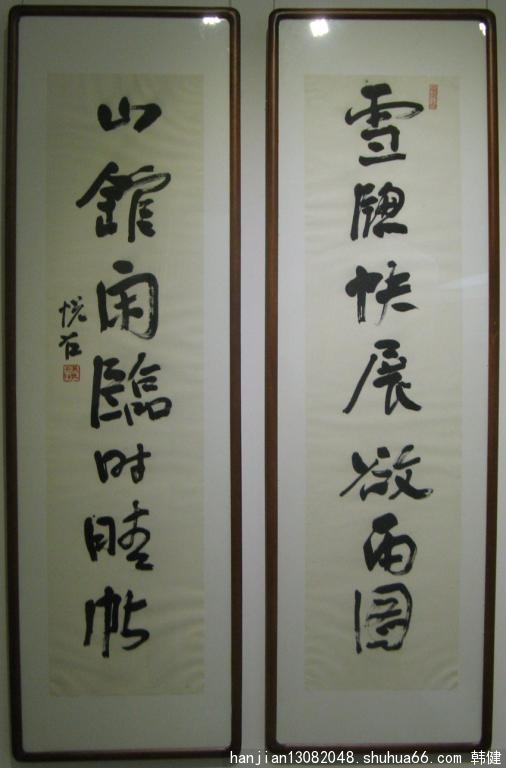 雪牕快展欲雨圖
山館闲臨时晴帖
悦石
hanjian13082048.shuhua66.com 韩健